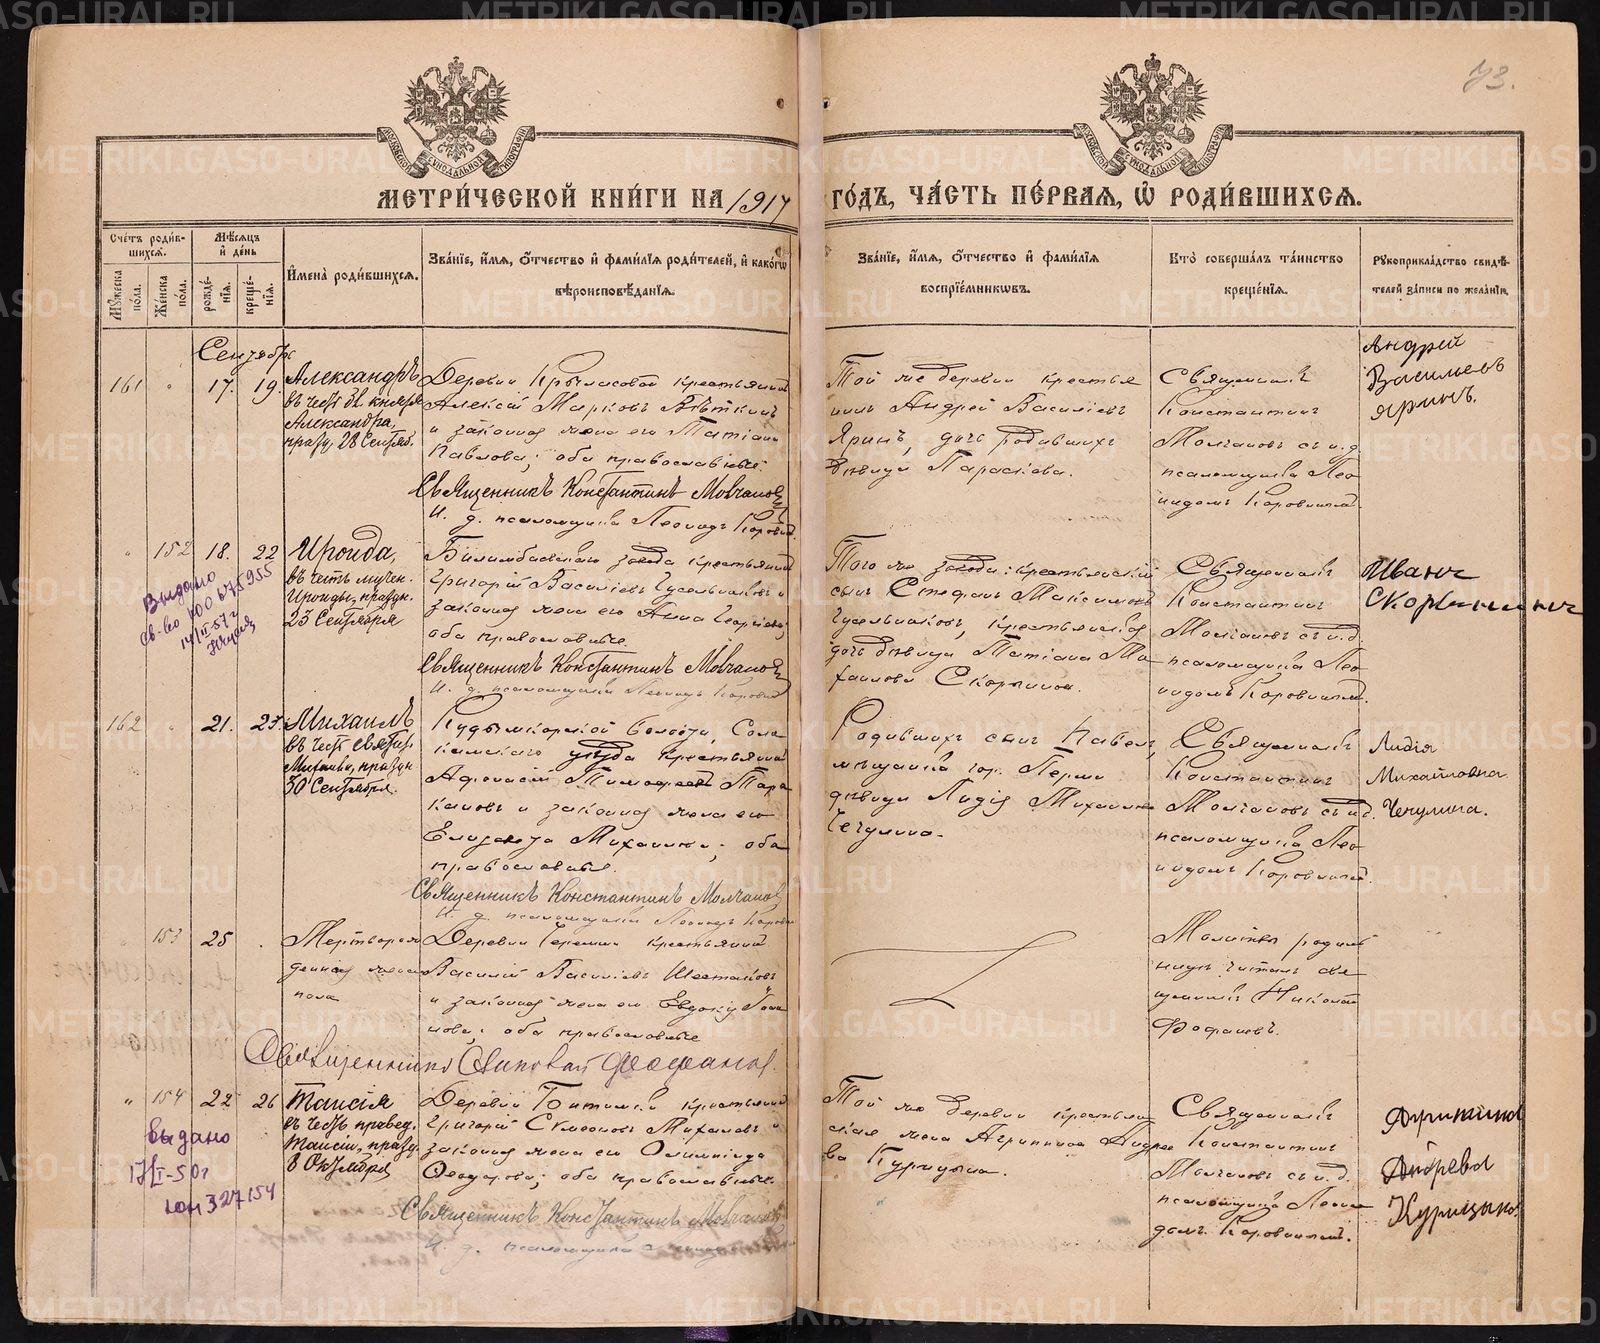 73.
МЕТРИ́ЧЕСКОЙ КНИ́ГИ НА 1917 ГО́ДЪ, ЧА́СТЬ ПЕ́РВАЯ, Ѽ РОДИ́ВШИХСЯ.
Сче́тъ роди́вшихся.
Мѣ́сяцъ и҆ де́нь
Мꙋ́жеска по́ла.
Же́нска по́ла.
рожде́нїя.
креще́нїя.
И҆мена̀ роди́вшихся.
Зва́нїе, и҆́мя, ѻ҆́тчество и҆ фами́лїя роди́телей, и҆ како́гѡ
вѣроисповѣ́данїя.
Зва́нїе, и҆́мя, ѻ҆́тчество и҆ фами́лїя
воспрїе́мникѡвъ.
Кто̀ соверша́лъ та́инство
креще́нїя.
Рꙋкоприкла́дство свидѣ́-
телей за́писи по жела́нїю.
Сентябрь
161 " 17. 19.
Александръ
въ честь бл. князя
Александра,
праздн. 28 Сентяб.
Деревни Крыласовой крестьянинъ
Алексѣй Марковъ Вѣткинъ
и законная жена его Татіана
Павлова; оба православные.
Священникъ Константинъ Молчановъ
И. д. псаломщика Леонидъ Коровин
Той же деревни крестья
нинъ Андрей Василіевъ
Яринъ, дочь родившихъ
дѣвица Параскева.
Священникъ
Константинъ
Молчановъ съ и.д.
псаломщика Лео
нидомъ
Андрей
Васильевъ
Яринъ.
" 152 18. 22.
Ироида,
въ честь мучен.
Ироиды, праздн.
23 Сентября
Выдано
св-во
14/II-57 г
Билимбаевскаго завода крестьянинъ
Григорій Василіевъ Гусельниковъ и
законная жена его Анна Георгіева;
оба православные.
Священникъ Константинъ Молчановъ
И. д. псаломщика Леонидъ Коровин
Того же завода: крестьянскій
сынъ Стефанъ Максимовъ
Гусельниковъ, крестьянская
дочь дѣвица Татіана Ми
хаилова Скорынина.
Священникъ
Константинъ
Молчановъ съ и.д.
псаломщика Лео
нидомъ
Иванъ
Скорынинъ
162 " 21. 23.
Михаилъ
въ честь святаго
Михаила, праздн
30 Сентября.
Кудымкарской волости, Соли
камскаго уѣзда крестьянинъ
Афонасій Тимофеевъ Тара
кановъ и законная жена его
Елизавета Михаилова; оба
православные.
Священникъ Константинъ Молчановъ
И. д. псаломщика Леонидъ Коровин
Родившихъ сынъ Павелъ,
мѣщанка гор. Перми
дѣвица Лидія Михаилова
Чечулина.
Священникъ
Константинъ
Молчановъ съ и.д.
псаломщика Лео
нидомъ
Лидія
Михайловна
Чечулина.
" 153 25 .
Мертворож
денная женска
пола
Деревни крестьянинъ
Василій Василіевъ Шестаковъ
и законная жена его Евдокія
нова; оба православные
Священникъ Николай Феофановъ.
Молитву родиль
ницѣ читалъ свя
щенникъ Николай
Феофановъ.
" 154 22 26
Таисія
въ честь правед.
Таисіи, праздн.
8 Октября
Выдано
17/I-50 г
327154
Деревни Битимки крестьянинъ
Григорій Симеоновъ Михалевъ и
законная жена его Олимпіада
Ѳеодорова; оба православные.
Священникъ Константинъ Молчановъ
И. д. псаломщика
Той же деревни крестьян
ская жена Агриппина Андрее
ва Курицына.
Священникъ
Константинъ
Молчановъ съ и.д.
псаломщика Леони
домъ
Андреева
Курицына
METRIKI.GASO-URAL.RU